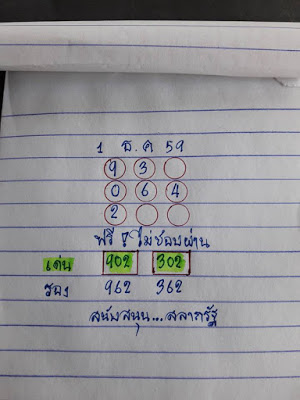 1 ธ.ค 59
9 3
0 6 4
2
ฟรี ๆ ไม่ชอบผ่าน
เด่น 902 302
รอง 962 362
สนับสนุน...สลากรัฐ